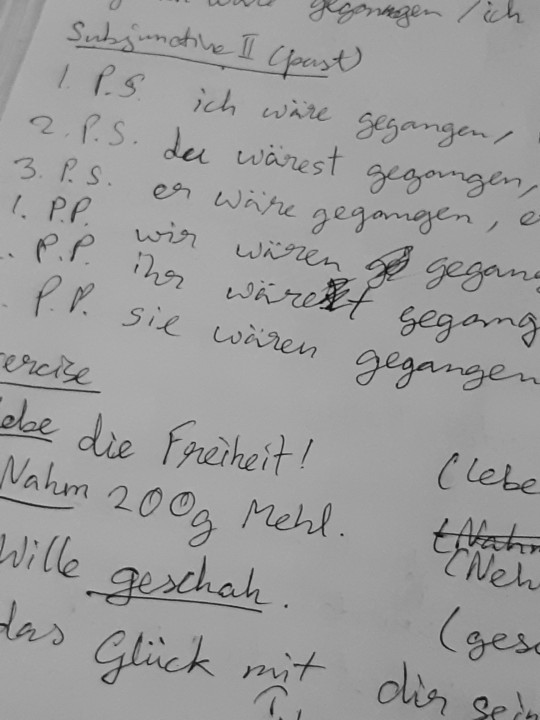 wäre gegangen / ich
Subjunctive II (past)
1. P.S. ich wäre gegangen,
2. P.S. du wärest gegangen,
3. P.S. er wäre gegangen, e
1. P.P. wir wären gegang
. P.P. ihr wäret gegang
. P.P. sie wären gegangen
ercise
ebe die Freiheit! (lebe
Nahm 200g Mehl. (Nahm
(Neh
Wille geschah. (gesc
das Glück mit dir sein